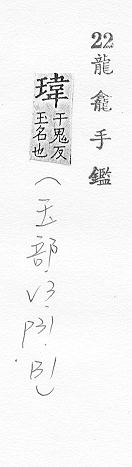 22龍龕手鑑
瑋 于鬼反玉名也
(玉部.V3.P31.B1)